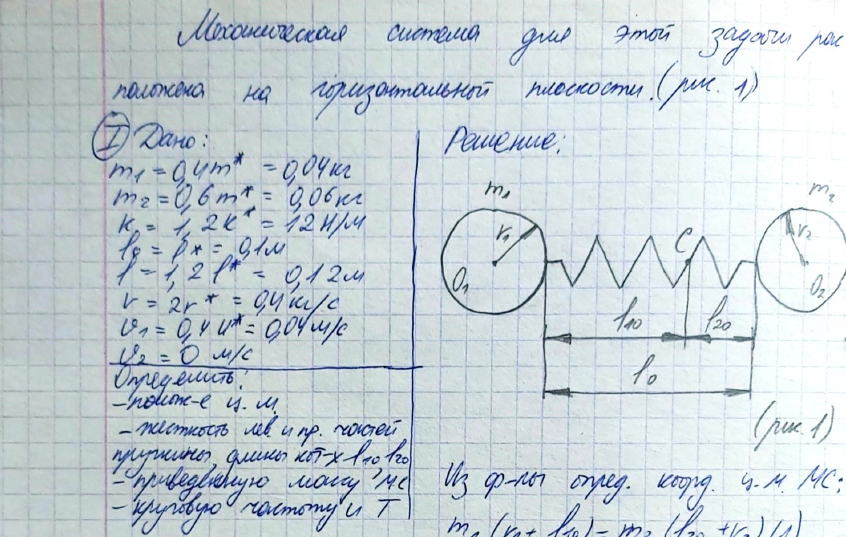 Механическая система для этой задачи рас
положена на горизонтальной плоскости. (рис. 1)
I Дано:
m₁ = 0,4m* = 0,04кг
m₂ = 0,6m* = 0,06кг
k = 1,2k* = 12Н/м
l₀ = l* = 0,1м
l = 1,2l* = 0,12м
r = 2r* = 0,4кг/с
υ₁ = 0,4υ* = 0,04м/с
υ₂ = 0 м/с
Определить:
- полож-е ц.м.
- жесткость лев. и пр. частей
пружины, длины кот-х l₁₀, l₂₀
- приведенную массу МС
- круговую частоту и T
Решение:
m₁
m₂
r₁
C
r₂
O₁
O₂
l₁₀
l₂₀
l₀
(рис. 1)
Из ф-лы опред. коорд. ц.м. МС:
m₁(r₁ + l₁₀) = m₂(l₂₀ + r₂) (1)